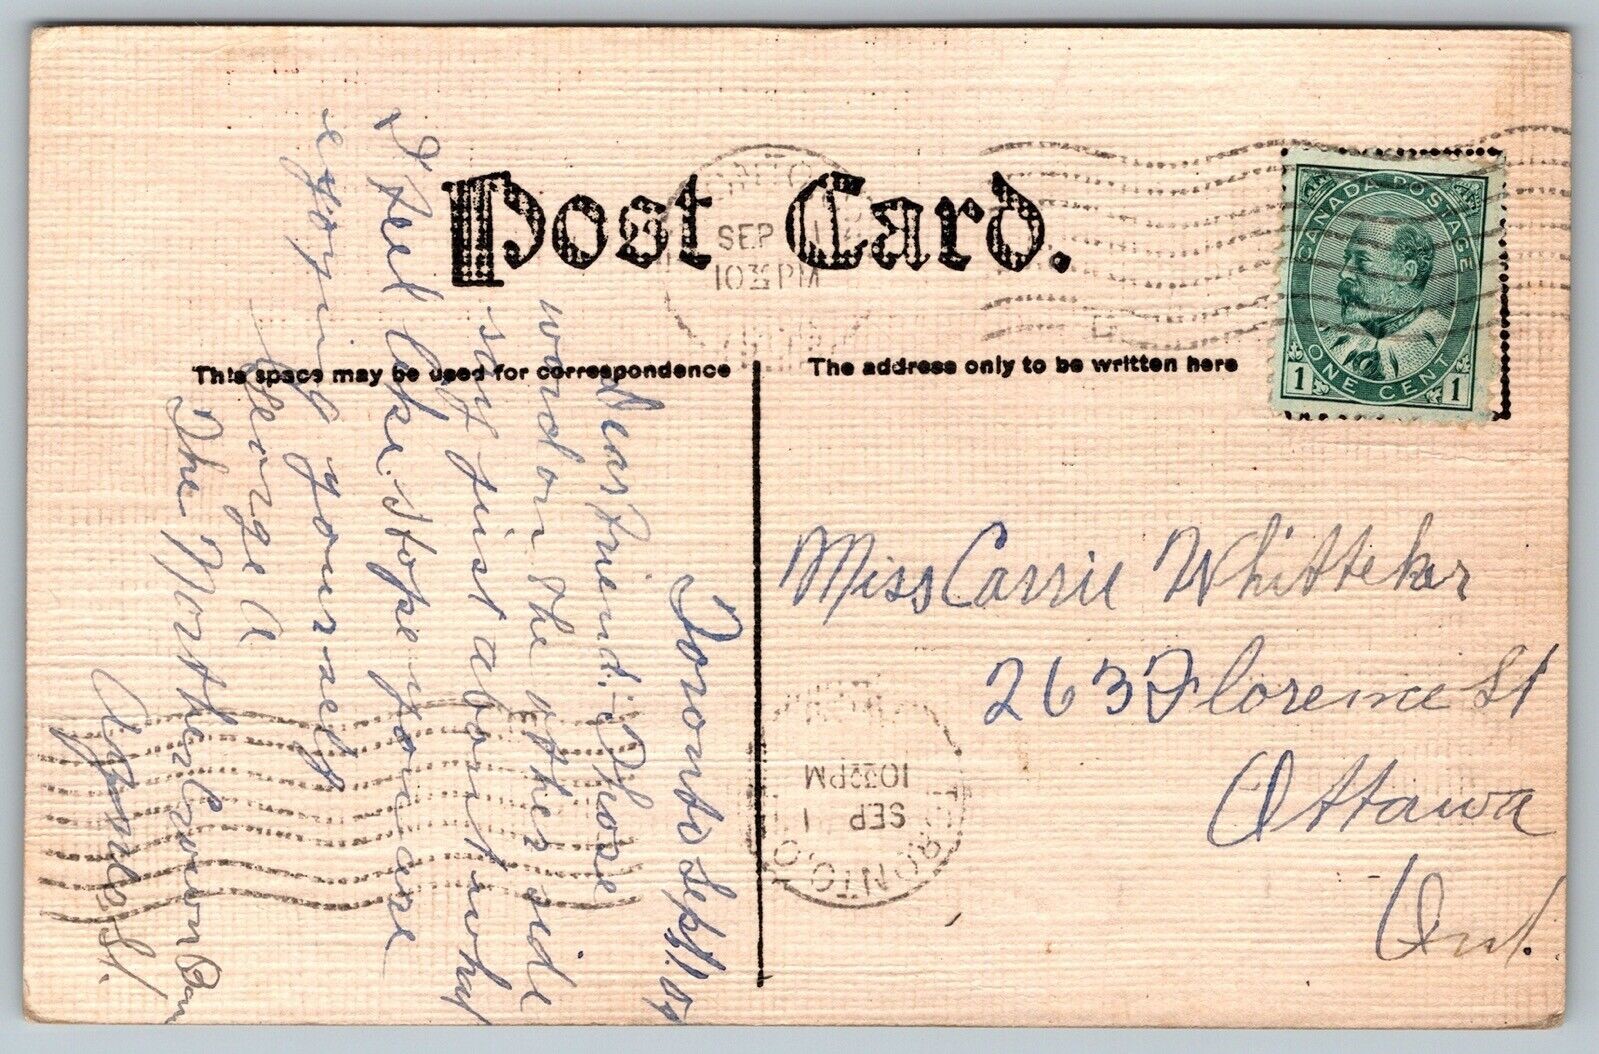 Post Card.
CANADA POSTAGE
1 ONE CENT 1
TORONTO
SEP 1
10 30 PM
This space may be used for correspondence
The address only to be written here
Toronto Sept 1. 07
Dear Friend: Those
word on the other side
say just about what
I feel like. Hope you are
enjoying yourself
George A.
The Northern Crown Ban
Agnes St.
Miss Carrie Whitteker
263 Florence St
Ottawa
Ont.
TORONTO, O
SEP 1
10 30 PM